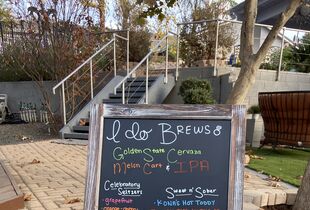 I do BREWS
Golden State Cervaza
Melon Cart & IPA
Celebratory
Seltzers
- grapefruit
Sober
- Kona's Hot Toddy